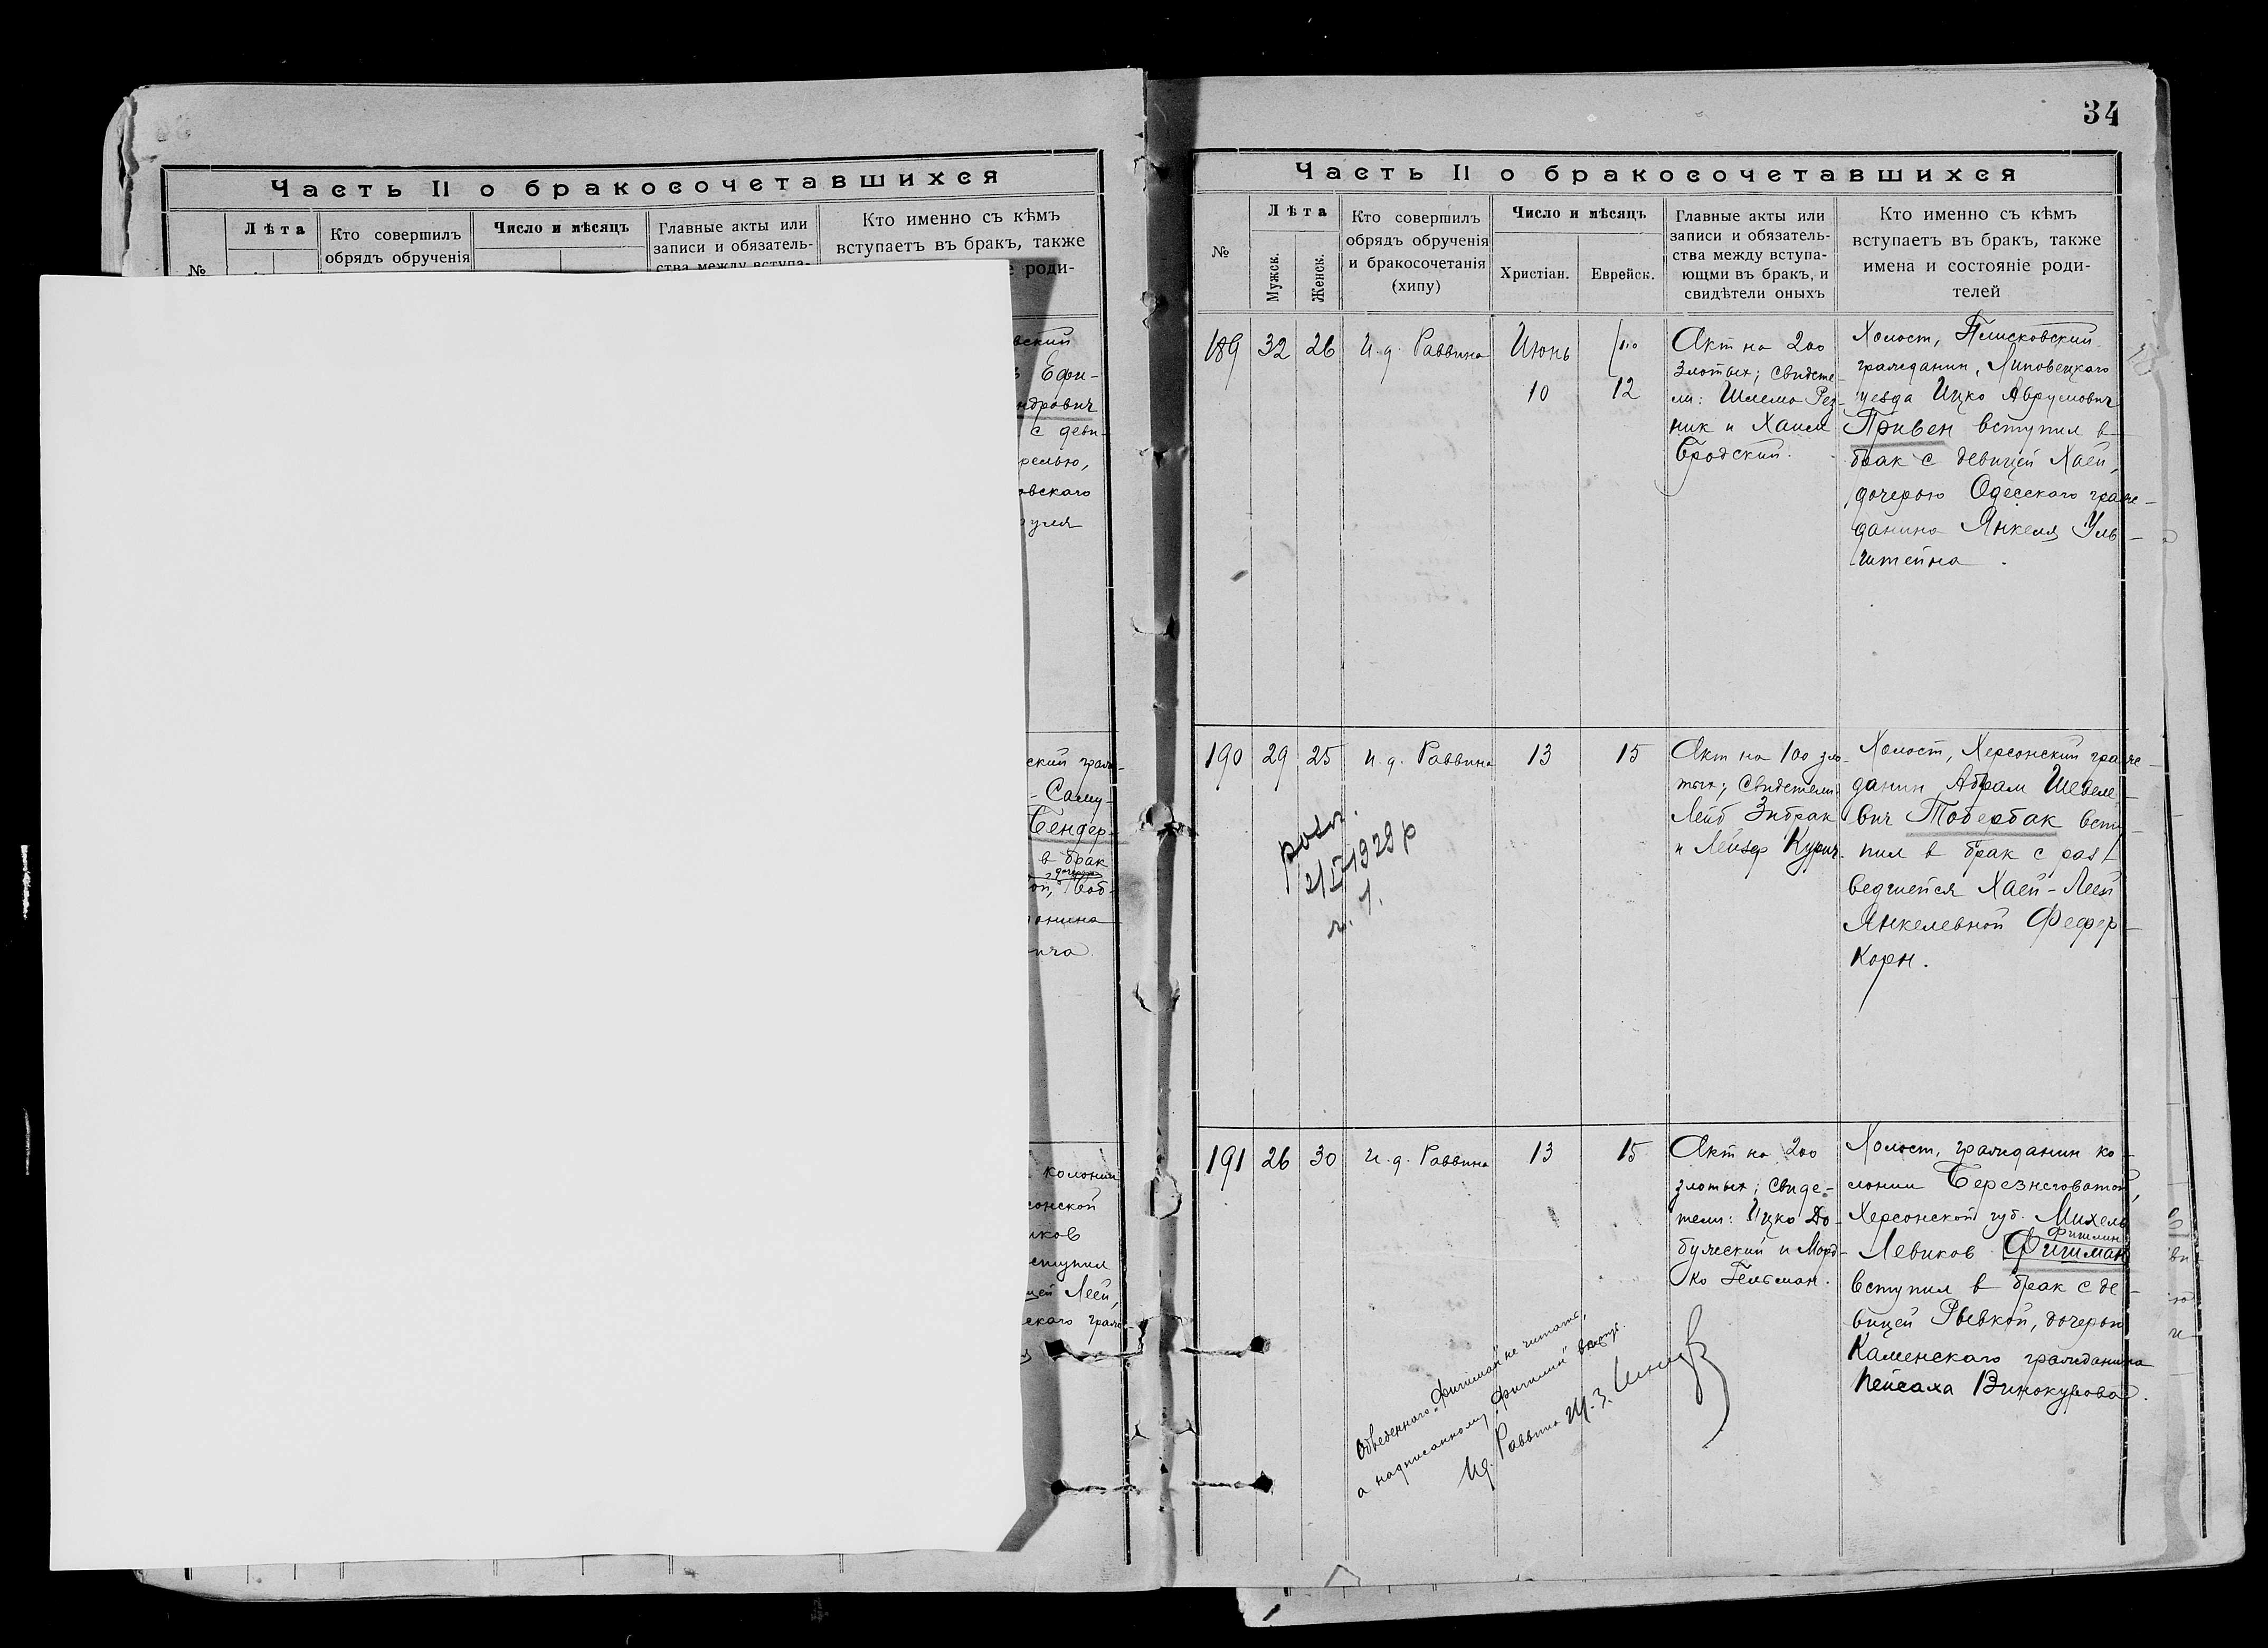 Часть II о бракосочетавшихся
№
Лѣта
Кто совершилъ
обрядъ обрученія
Число и мѣсяцъ
Главные акты или
записи и обязатель-
ства между вступа-
Кто именно съ кѣмъ
вступаетъ въ бракъ, также
роди-
вский
Ефи-
ндрович
с деви-
релью,
овского
ский граж-
- Саму-
Бендер-
в брак
дочерью
онина
ича.
колонии
сонской
иков
ступил
цей Леей,
скаго граж-
34
Часть II о бракосочетавшихся
№
Лѣта
Мужск.
Женск.
Кто совершилъ
обрядъ обрученія
и бракосочетанія
(хипу)
Число и мѣсяцъ
Христіан.
Еврейск.
Главные акты или
записи и обязатель-
ства между вступа-
ющми въ бракъ, и
свидѣтели оныхъ
Кто именно съ кѣмъ
вступаетъ въ бракъ, также
имена и состояніе роди-
телей
189
32
26
И. д. Раввина
Июнь
10
12
Акт на 200
злотых; свидете-
ли: Шлема Рез-
ник и Хаим
Бродский.
Холост, Плисковский
гражданин, Липовецкаго
уезда Ицко Аврумович
Привен вступил в
брак с девицей Хаей,
дочерью Одесскаго граж-
данина Янкеля Уль-
штейна.
190
29
25
И. д. Раввина
13
15
Акт на 100 зло-
тых; свидетели:
Лейб Зибрак
и Лейзер
Холост, Херсонский граж-
данин Абрам Шевеле-
вич Тобербак всту-
пил в брак с раз-
ведшейся Хаей-Леей
Янкелевной Фефер-
Корн.
1929 р
191
26
30
И. д. Раввина
13
15
Акт на 200
злотых; свиде-
тели: Ицко До-
бужский и Морд-
ко Гельман.
Холост, гражданин ко-
лонии Березнеговатой,
Херсонской губ. Михель
Фишлин
Левиков Фишман
вступил в брак с де-
вицей Рывкой, дочерью
Каменскаго гражданина
Пейсаха Винокурова.
Обведеннаго „Фишман" не читать,
а надписанному „Фишлин" верить.
И.д. Раввина